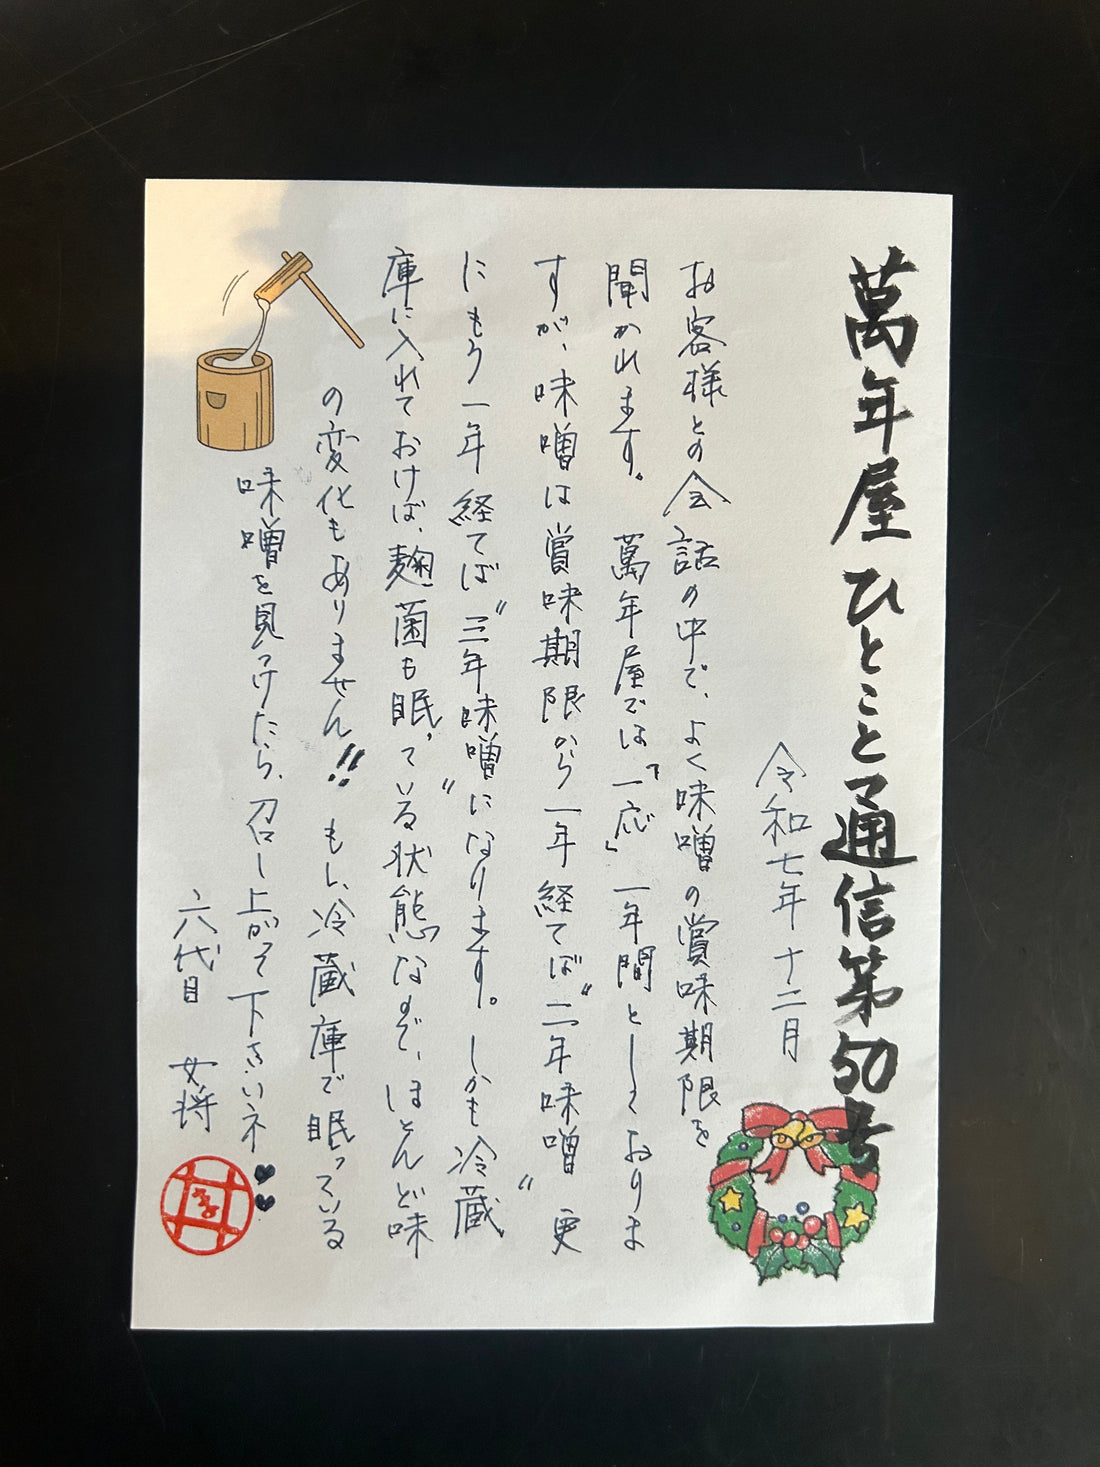 萬年屋 ひとこと通信第50号
令和七年 十二月
お客様との会話の中で、よく味噌の賞味期限を
聞かれます。 萬年屋では、「一応」一年間としておりま
すが、味噌は賞味期限から一年経てば“二年味噌” 更
にもう一年経てば“三年味噌”になります。しかも冷蔵
庫に入れておけば、麹菌も眠っている状態なので、ほとんど味
の変化もありません!! もし、冷蔵庫で眠っている
味噌を見つけたら、召し上がって下さいネ♥♥
六代目 女将